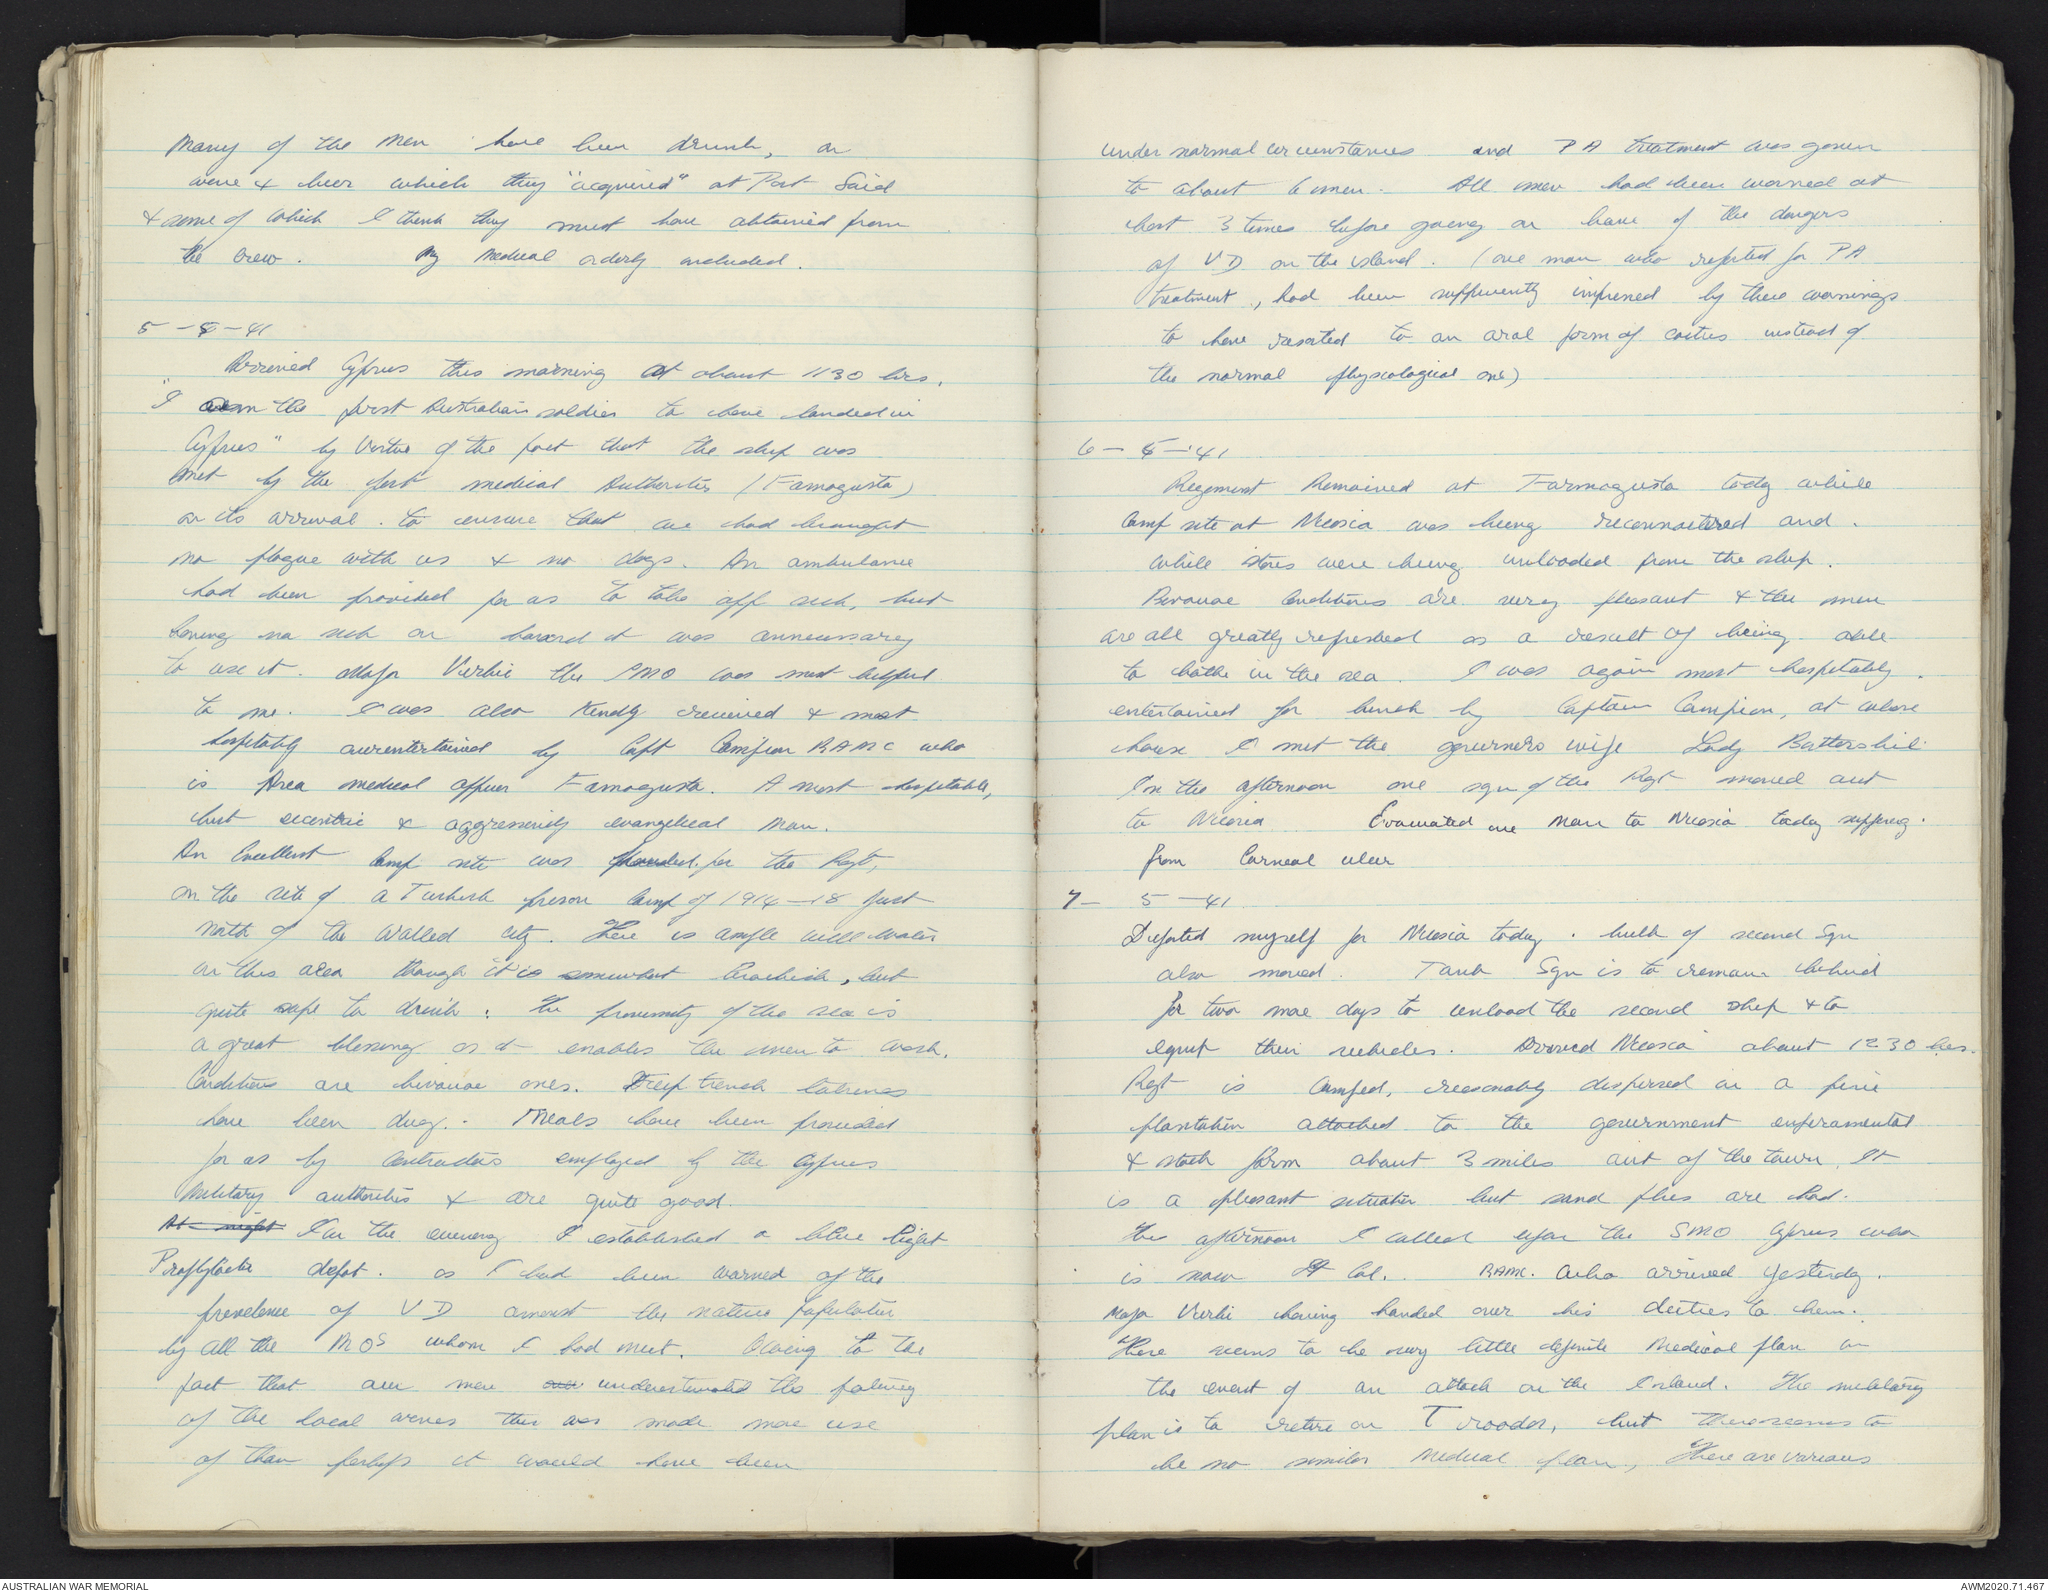 Many of the Men have been drunk, on
wine & beer which they "acquired" at Port Said
& some of which I think they must have obtained from
the crew. My Medical orderly included.
5-5-41
Arrived Cyprus this morning at about 1130 hrs.
"I am the first Australian soldier to have landed in
Cyprus" by virtue of the fact that the ship was
met by the port medical Authorities (Famagusta)
on its arrival. to ensure that we had brought
no plague with us & no dogs. An ambulance
had been provided for us to take off sick, but
having no sick on board it was unnecessary
to use it. Major Virhie the SMO was most helpful
to me. I was also kindly received & most
hospitably entertained by Capt Campion RAMC who
is Area medical officer Famagusta. A most hospitable,
but eccentric & aggressively evangelical man.
An Excellent Camp site was provided for the Regt,
on the site of a Turkish prison Camp of 1914-18 just
north of the walled city. There is ample well water
in this area though it is somewhat brackish, but
quite safe to drink: the proximity of the sea is
a great blessing as it enables the men to wash.
Conditions are bivouac ones. Deep trench latrines
have been dug. Meals have been provided
for us by Contractors employed by the Cyprus
Military authorities & are quite good.
At night In the evening I established a blue light
Prophylactic depot. as I had been warned of the
prevelence of VD amonst the native population
by all the MOs whom I had met. Owing to the
fact that our men underestimated the potency
of the local wines this was made more use
of than perhaps it would have been
under normal circumstances and PA treatment was given
to about 6 men. All men had been warned at
least 3 times before going on leave of the dangers
of VD on the island. (one man who reported for PA
treatment, had been sufficiently impressed by these warnings
to have resorted to an oral form of coitus instead of
the normal physiological one)
6-5-'41
Regiment Remained at Farmagusta today while
Camp site at Nicosia was being reconnoitered and.
while stores were being unloaded from the ship.
Bivouac Conditions are very pleasant & the men
are all greatly refreshed as a result of being able
to bathe in the sea. I was again most hospitably
entertained for lunch by Captain Campion, at whose
house I met the governors wife Lady Battershil
In the afternoon one sqn of the Regt moved out
to Nicosia Evacuated one Man to Nicosia today suffering.
from Corneal ulcer
7- 5-41
Departed myself for Nicosia today. bulk of second Sqn
also moved. Tank Sqn is to remain behind
for two more days to unload the second ship & to
equip their vehicles. Arrived Nicosia about 1230 hrs.
Regt is Camped, reasonably dispersed in a pine
plantation attached to the government experamental
& stock farm about 3 miles out of the town. It
is a pleasant situation but sand flies are bad.
This afternoon I called upon the SMO Cyprus who
is now Lt Col.. RAMC. who arrived yesterday.
Major Virhi having handed over his duties to him.
There seems to be very little definite Medical plan in
the event of an attack on the Island. The military
plan is to retire on Troodos, but there seems to
be no similar Medical plan, There are various
AUSTRALIAN WAR MEMORIAL
AWM2020.71.467